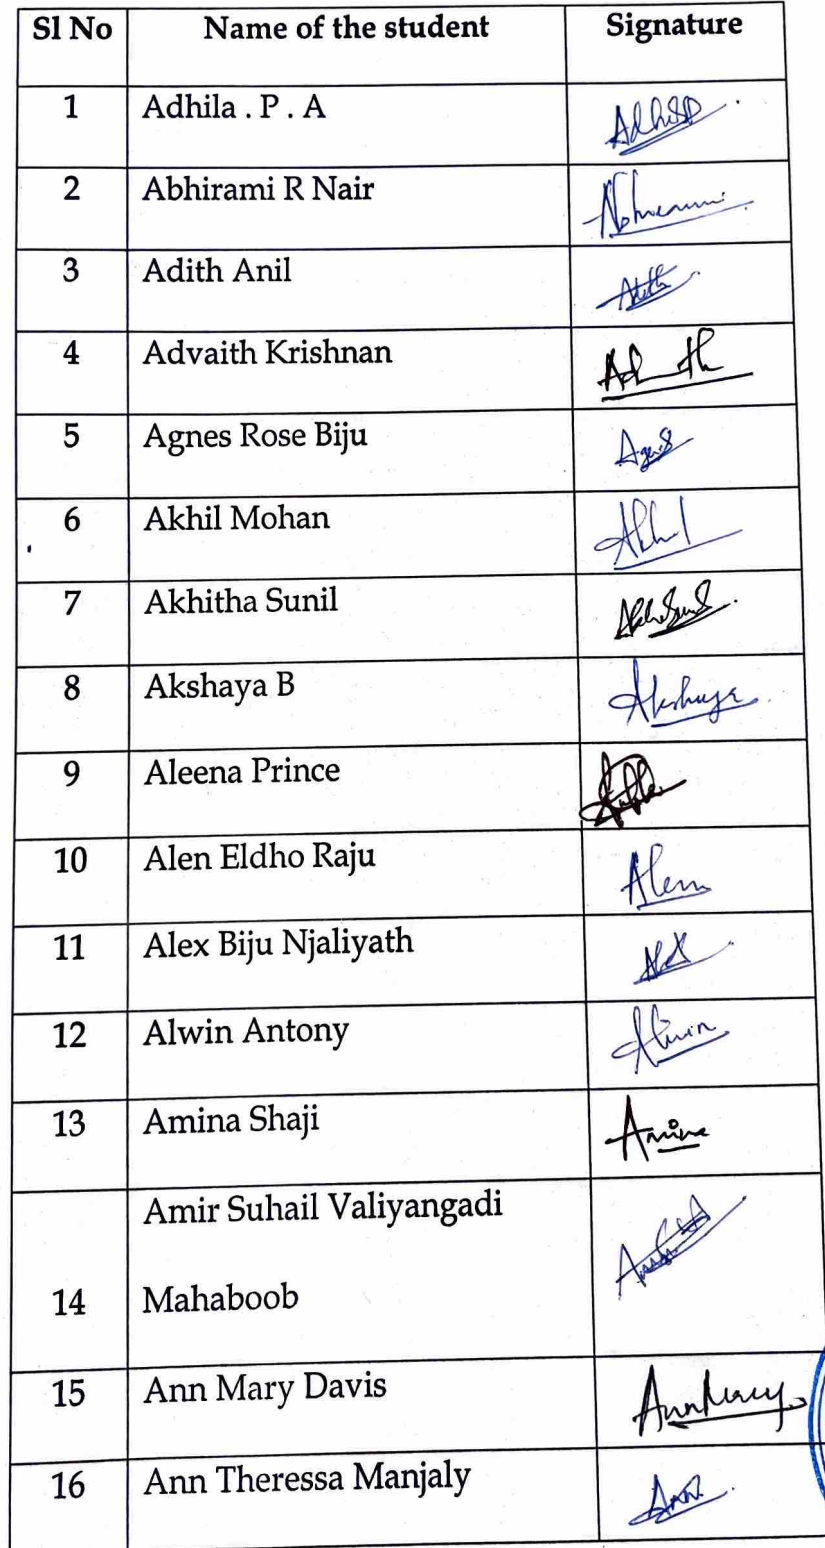 Sl No Name of the student Signature
1 Adhila . P . A
2 Abhirami R Nair
3 Adith Anil Adith
4 Advaith Krishnan
5 Agnes Rose Biju Agnes
6 Akhil Mohan Akhil
7 Akhitha Sunil
8 Akshaya B Akshaya
9 Aleena Prince
10 Alen Eldho Raju Alen
11 Alex Biju Njaliyath Alex
12 Alwin Antony Alwin
13 Amina Shaji Amina
Amir Suhail Valiyangadi
14 Mahaboob
15 Ann Mary Davis AnnMary
16 Ann Theressa Manjaly Ann